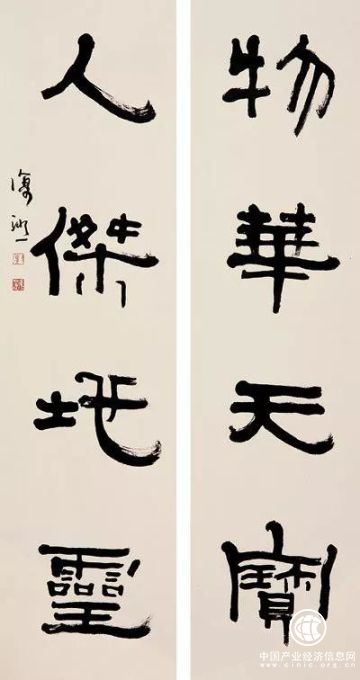 物華天寶
人傑地靈
中国产业经济信息网
www.cinic.org.cn